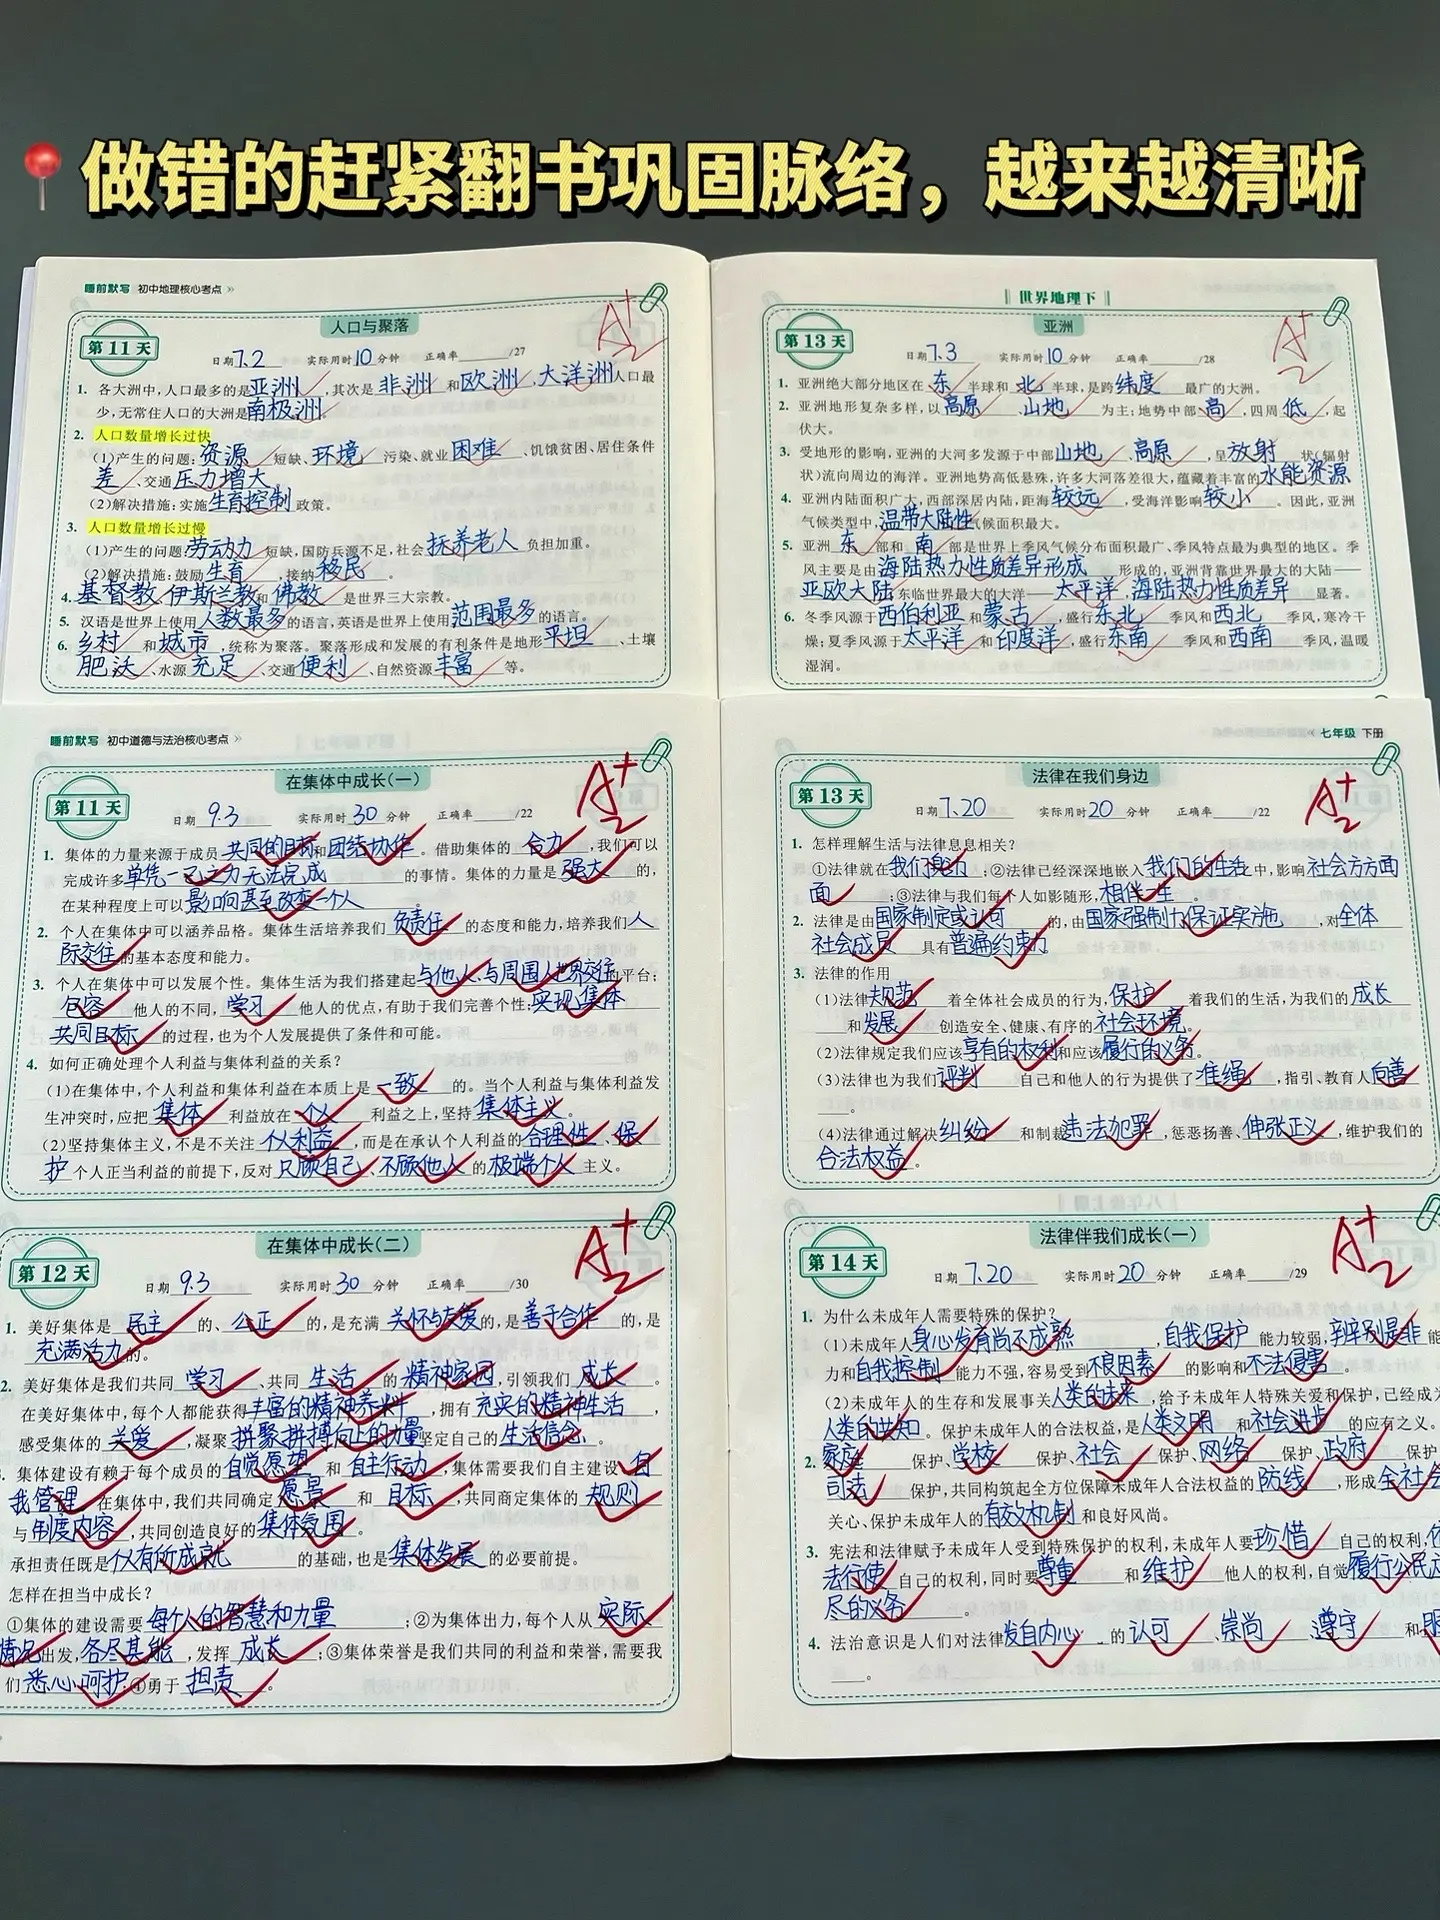 做错的赶紧翻书巩固脉络，越来越清晰
睡前默写 初中地理核心考点 »
人口与聚落
A+
2
第11天
日期 7.2 实际用时 10 分钟 正确率 /27
1. 各大洲中,人口最多的是亚洲,其次是非洲和欧洲,大洋洲人口最
少,无常住人口的大洲是南极洲.
2. 人口数量增长过快
(1)产生的问题:资源短缺、环境污染、就业困难、饥饿贫困、居住条件
差、交通压力增大。
(2)解决措施:实施生育控制政策。
3. 人口数量增长过慢
(1)产生的问题:劳动力短缺,国防兵源不足,社会抚养老人负担加重。
(2)解决措施:鼓励生育,接纳移民。
4. 基督教、伊斯兰教和佛教是世界三大宗教。
5. 汉语是世界上使用人数最多的语言,英语是世界上使用范围最多的语言。
6. 乡村和城市,统称为聚落。聚落形成和发展的有利条件是地形平坦、土壤
肥沃、水源充足、交通便利、自然资源丰富等。
世界地理下
亚洲
A+
2
第13天
日期 7.3 实际用时 10 分钟 正确率 /28
1. 亚洲绝大部分地区在东半球和北半球,是跨纬度最广的大洲。
2. 亚洲地形复杂多样,以高原、山地为主;地势中部高,四周低,起
伏大。
3. 受地形的影响,亚洲的大河多发源于中部山地、高原,呈放射状(辐射
状)流向周边的海洋。亚洲地势高低悬殊,许多大河落差很大,蕴藏着丰富的水能资源
4. 亚洲内陆面积广大,西部深居内陆,距海较远,受海洋影响较小。因此,亚洲
气候类型中,温带大陆性气候面积最大。
5. 亚洲东部和南部是世界上季风气候分布面积最广、季风特点最为典型的地区。季
风主要是由海陆热力性质差异形成形成的,亚洲背靠世界最大的大陆——
亚欧大陆,东临世界最大的大洋——太平洋,海陆热力性质差异显著。
6. 冬季风源于西伯利亚和蒙古,盛行东北季风和西北季风,寒冷干
燥;夏季风源于太平洋和印度洋,盛行东南季风和西南季风,温暖
湿润。
睡前默写 初中道德与法治核心考点 »
在集体中成长(一)
A+
2
第11天
日期 9.3 实际用时 30 分钟 正确率 /22
1. 集体的力量来源于成员共同的目标和团结协作。借助集体的合力,我们可以
完成许多单凭一己之力无法完成的事情。集体的力量是强大的,
在某种程度上可以影响甚至改变一个人。
2. 个人在集体中可以涵养品格。集体生活培养我们负责任的态度和能力,培养我们人
际交往的基本态度和能力。
3. 个人在集体中可以发展个性。集体生活为我们搭建起与他人、与周围人世界交往的平台;
包容他人的不同,学习他人的优点,有助于我们完善个性;实现集体
共同目标的过程,也为个人发展提供了条件和可能。
4. 如何正确处理个人利益与集体利益的关系?
(1)在集体中,个人利益和集体利益在本质上是一致的。当个人利益与集体利益发
生冲突时,应把集体利益放在个人利益之上,坚持集体主义。
(2)坚持集体主义,不是不关注个人利益,而是在承认个人利益的合理性、保
护个人正当利益的前提下,反对只顾自己、不顾他人的极端个人主义。
« 七年级 下册
法律在我们身边
A+
2
第13天
日期 7.20 实际用时 20 分钟 正确率 /22
1. 怎样理解生活与法律息息相关?
①法律就在我们身边;②法律已经深深地嵌入我们的生活中,影响社会方方面
面;③法律与我们每个人如影随形,相伴一生。
2. 法律是由国家制定或认可的,由国家强制力保证实施,对全体
社会成员具有普遍约束力
3. 法律的作用
(1)法律规范着全体社会成员的行为,保护着我们的生活,为我们的成长
和发展创造安全、健康、有序的社会环境。
(2)法律规定我们应该享有的权利和应该履行的义务。
(3)法律也为我们评判自己和他人的行为提供了准绳,指引、教育人向善
。
(4)法律通过解决纠纷和制裁违法犯罪,惩恶扬善、伸张正义,维护我们的
合法权益。
在集体中成长(二)
A+
2
第12天
日期 9.3 实际用时 30 分钟 正确率 /30
1. 美好集体是民主的、公正的,是充满关怀与友爱的,是善于合作的,是
充满活力的。
2. 美好集体是我们共同学习、共同生活的精神家园,引领我们成长。
在美好集体中,每个人都能获得丰富的精神养料,拥有充实的精神生活,
感受集体的关爱,凝聚拼聚拼搏向上的力量坚定自己的生活信念。
集体建设有赖于每个成员的自觉愿望和自主行动,集体需要我们自主建设、自
我管理。在集体中,我们共同确定愿景和目标,共同商定集体的规则
与制度内容,共同创造良好的集体氛围。
承担责任既是个人有所成就的基础,也是集体发展的必要前提。
怎样在担当中成长?
①集体的建设需要每个人的智慧和力量;②为集体出力,每个人从实际
情况出发,各尽其能,发挥成长;③集体荣誉是我们共同的利益和荣誉,需要我
们悉心呵护;④勇于担责。
法律伴我们成长(一)
A+
2
第14天
日期 7.20 实际用时 20 分钟 正确率 /29
1. 为什么未成年人需要特殊的保护?
(1)未成年人身心发育尚不成熟,自我保护能力较弱,辨别是非能
力和自我控制能力不强,容易受到不良因素的影响和不法侵害。
(2)未成年人的生存和发展事关人类的未来,给予未成年人特殊关爱和保护,已经成为
人类的共知。保护未成年人的合法权益,是人类文明和社会进步的应有之义。
2. 家庭保护、学校保护、社会保护、网络保护、政府保护、
司法保护,共同构筑起全方位保障未成年人合法权益的防线,形成全社会
关心、保护未成年人的有效机制和良好风尚。
3. 宪法和法律赋予未成年人受到特殊保护的权利,未成年人要珍惜自己的权利,依
法行使自己的权利,同时要尊重和维护他人的权利,自觉履行公民应
尽的义务。
4. 法治意识是人们对法律发自内心的认可、崇尚、遵守和服
。